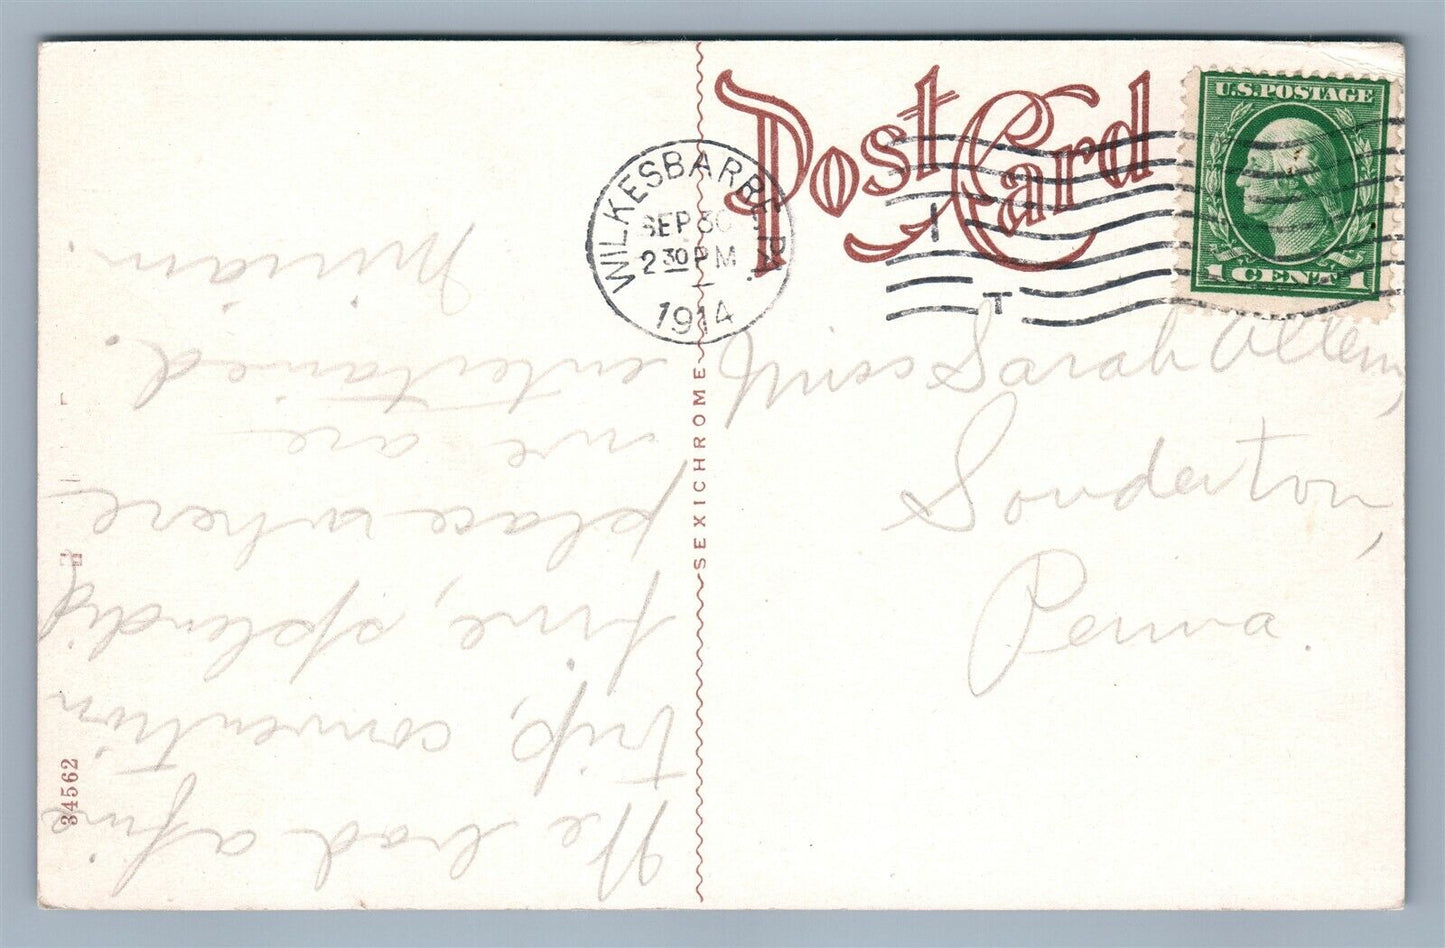 Post Card
U.S. POSTAGE
1 CENT 1
WILKESBARRE, PA.
SEP 30
2 30 PM
1914
SEXICHROME
34562
Miss Sarah Allem,
Souderton,
Penna.
We had a fine
trip, convention
fine, splendid
place where
we are
entertained.
Miriam.